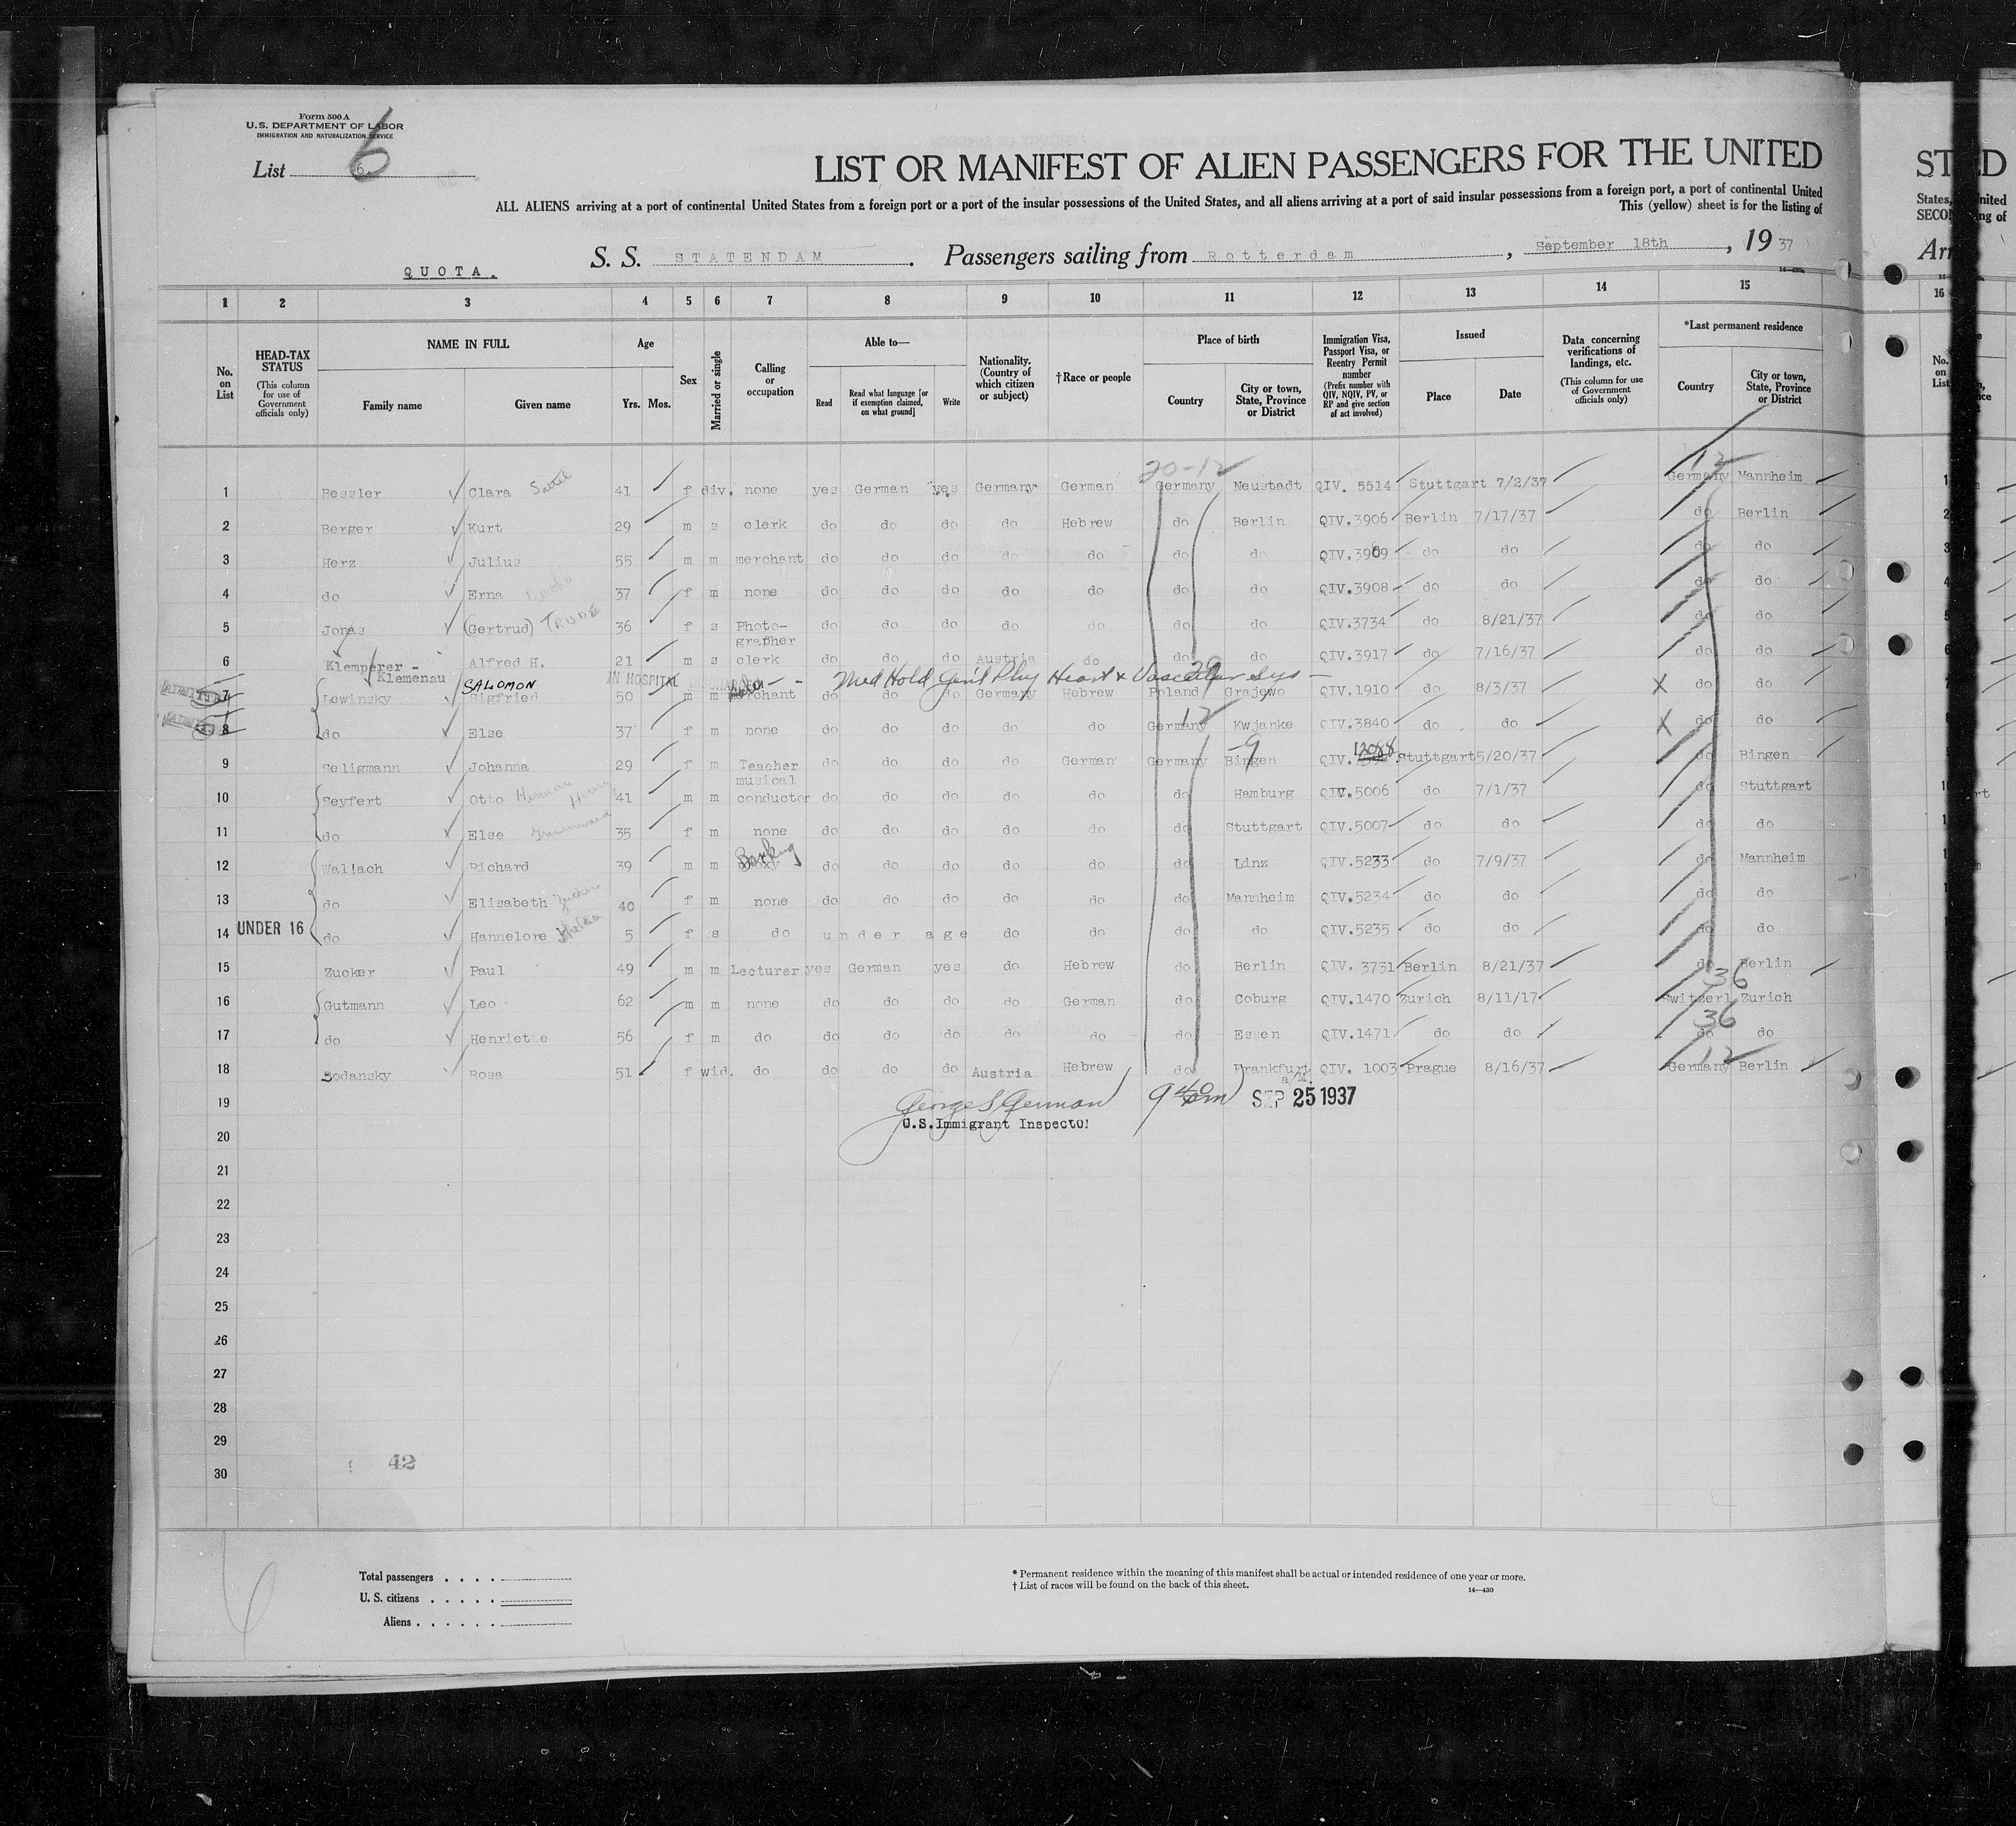 Form 500 A
U.S. DEPARTMENT OF LABOR
IMMIGRATION AND NATURALIZATION SERVICE
List 6
LIST OR MANIFEST OF ALIEN PASSENGERS FOR THE UNITED
ST
ALL ALIENS arriving at a port of continental United States from a foreign port or a port of the insular possessions of the United States, and all aliens arriving at a port of said insular possessions from a foreign port, a port of continental United
This (yellow) sheet is for the listing of
QUOTA.
S. S. STATENDAM. Passengers sailing from Rotterdam, September 18th, 19 37
1 2 3 4 5 6 7 8 9 10 11 12 13 14 15 16
No. on List
HEAD-TAX STATUS (This column for use of Government officials only)
NAME IN FULL Family name Given name
Age Yrs. Mos.
Sex
Married or single
Calling or occupation
Able to— Read Read what language [or if exemption claimed, on what ground] Write
Nationality. (Country of which citizen or subject)
†Race or people
Place of birth Country City or town, State, Province or District
Immigration Visa, Passport Visa, or Reentry Permit number (Prefix number with QIV, NQIV, PV, or RP and give section of act involved)
Issued Place Date
Data concerning verifications of landings, etc. (This column for use of Government officials only)
*Last permanent residence Country City or town, State, Province or District
20-12 12
1 Bessler Clara 41 f div. none yes German yes Germany German Germany Neustadt QIV. 5514 Stuttgart 7/2/37 Germany Mannheim
2 Berger Kurt 29 m s clerk do do do do Hebrew do Berlin QIV.3906 Berlin 7/17/37 do Berlin
3 Herz Julius 55 m m merchant do do do do do do do QIV.3909 do do do do
4 do Erna 37 f m none do do do do do do do QIV.3908 do do do do
5 Jonas (Gertrud) TRUDE 36 f s Photo-grapher do do do do do do do QIV.3734 do 8/21/37 do do
6 Klemperer - Klemenau Alfred H. 21 m s clerk do do do Austria do do do QIV.3917 do 7/16/37 do do
IN HOSPITAL DISCHARGED Med Hold Gen'l Phy Heart & Vascular Sys -
7 Lewinsky SALOMON Sigfried 50 m m merchant do do do Germany Hebrew Poland Grajewo QIV.1910 do 8/3/37 X do do
8 do Else 37 f m none do do do do do Germany 12 Kwjanke QIV.3840 do do X do do
9 Seligmann Johanna 29 f m Teacher do do do do German Germany Bingen QIV. 12088 Stuttgart 5/20/37 do Bingen
10 Seyfert Otto 41 m m musical conductor do do do do do do Hamburg QIV.5006 do 7/1/37 do Stuttgart
11 do Else 35 f m none do do do do do do Stuttgart QIV.5007 do do do do
12 Wallach Richard 39 m m do do do do do do Linz QIV.5233 do 7/9/37 do Mannheim
13 do Elisabeth Zucker 40 f m none do do do do do do Mannheim QIV.5234 do do do do
14 UNDER 16 do Hannelore 5 f s do under age do do do do QIV.5235 do do do do
15 Zucker Paul 49 m m Lecturer yes German yes do Hebrew do Berlin QIV. 3731 Berlin 8/21/37 do Berlin
16 Gutmann Leo 62 m m none do do do do German do Coburg QIV.1470 Zurich 8/11/17 36 Switzerl. Zurich
17 do Henriette 56 f m do do do do do do do Essen QIV.1471 do do 36 do do
18 Bodansky Rosa 51 f wid. do do do do Austria Hebrew do Frankfurt a/M. QIV. 1003 Prague 8/16/37 12 Germany Berlin
19 George S German 9 40 am SEP 25 1937
U.S. Immigrant Inspector
20
21
22
23
24
25
26
27
28
29
42
30
Total passengers . . . .
U. S. citizens . . . . .
Aliens . . . . . .
* Permanent residence within the meaning of this manifest shall be actual or intended residence of one year or more.
† List of races will be found on the back of this sheet.
14—430